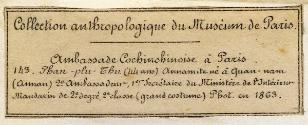 Collection anthropologique du Muséum de Paris.
Ambassade Cochinchinoise à Paris
143. Phan-phu-Thu (44 ans) Annamite né à Quan-nam
(Annam) 2e Ambassadeur, 1er Secrétaire du Ministère de l'Intérieur
Mandarin de 2e degré 2e classe (grand costume) Phot. en 1863.